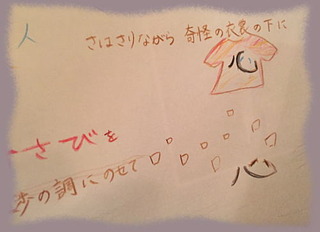 人
さはさりながら 奇怪の衣裳の下に
心
さびを
歩の調にのせて
心